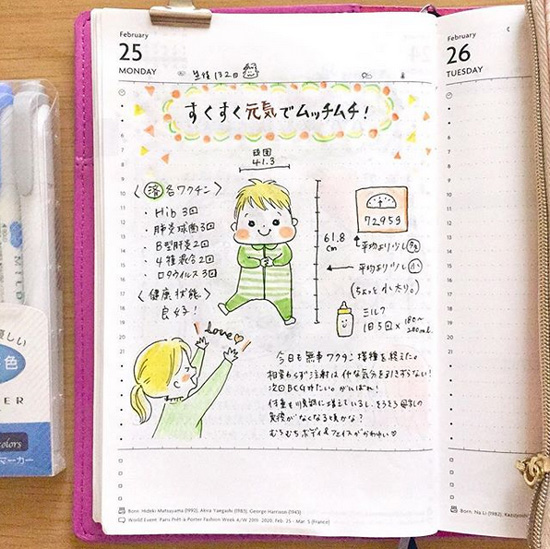 February
25
MONDAY
生後132日
すくすく元気でムッチムチ!
頭囲
41.3
〈済 各ワクチン〉
・Hib 3回
・肺炎球菌3回
・B型肝炎2回
・4種混合2回
・ロタウイルス3回
〈健康状態〉
良好!
61.8
cm
7295g
平均より少し
平均より少し 小
(ちょっと小太り。)
ミルク
1日5回×180〜
200ml
Love♡
今日も無事ワクチン接種を終えた。
相変わらず注射は
次回BCGみたい。がんばれ!
体重も順調に増えているし、そろそろ
がなくなる頃かな?
むちむちボディ&フェイスがかわいい♡
Born: Hideki Matsuyama (1992), Akira Yanagishi (1983), George Harrison (1943)
World Event: Paris Prêt-à-Porter Fashion Week A/W 2019-2020, Feb. 25 - Mar. 5 (France)
February
26
TUESDAY
Born: Na Li (1982),
MILD
色
colors
マーカー